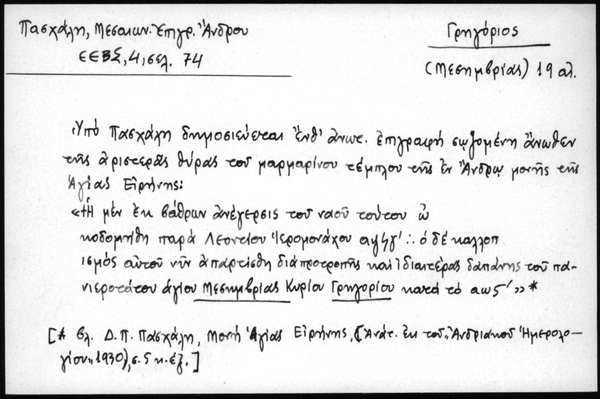 Πασχάλη, Μεσαιων. Ἐπιγρ. Ἄνδρου
ΕΕΒΣ, 4, σελ. 74
Γρηγόριος
(Μεσημβρίας) 19 αἰ.
Ὑπό Πασχάλη δημοσιεύεται ἔνθ' ἀνωτ. ἐπιγραφή σῳζομένη ἄνωθεν
τῆς ἀριστερᾶς θύρας τοῦ μαρμαρίνου τέμπλου τῆς ἐν Ἄνδρῳ μονῆς τῆς
Ἁγίας Εἰρήνης:
«Ἡ μέν ἐκ βάθρων ἀνέγερσις τοῦ ναοῦ τούτου ὠ
κοδομήθη παρά Λεοντίου Ἱερομονάχου αψϟγ' ∴ ὁ δέ καλλοπ
ισμός αὐτοῦ νῦν ἀπαρτίσθη διά προτροπῆς καί ἰδιαιτέρας δαπάνης τοῦ πα-
νιεροτάτου ἁγίου Μεσημβρίας Κυρίου Γρηγορίου κατά τό αως' »*
[* βλ. Δ. Π. Πασχάλη, Μονή Ἁγίας Εἰρήνης, (Ἀνάτ. ἐκ τοῦ "Ἀνδριακοῦ Ἡμερολο-
γίου" 1930), σ. 5 κ. ἑξ.]